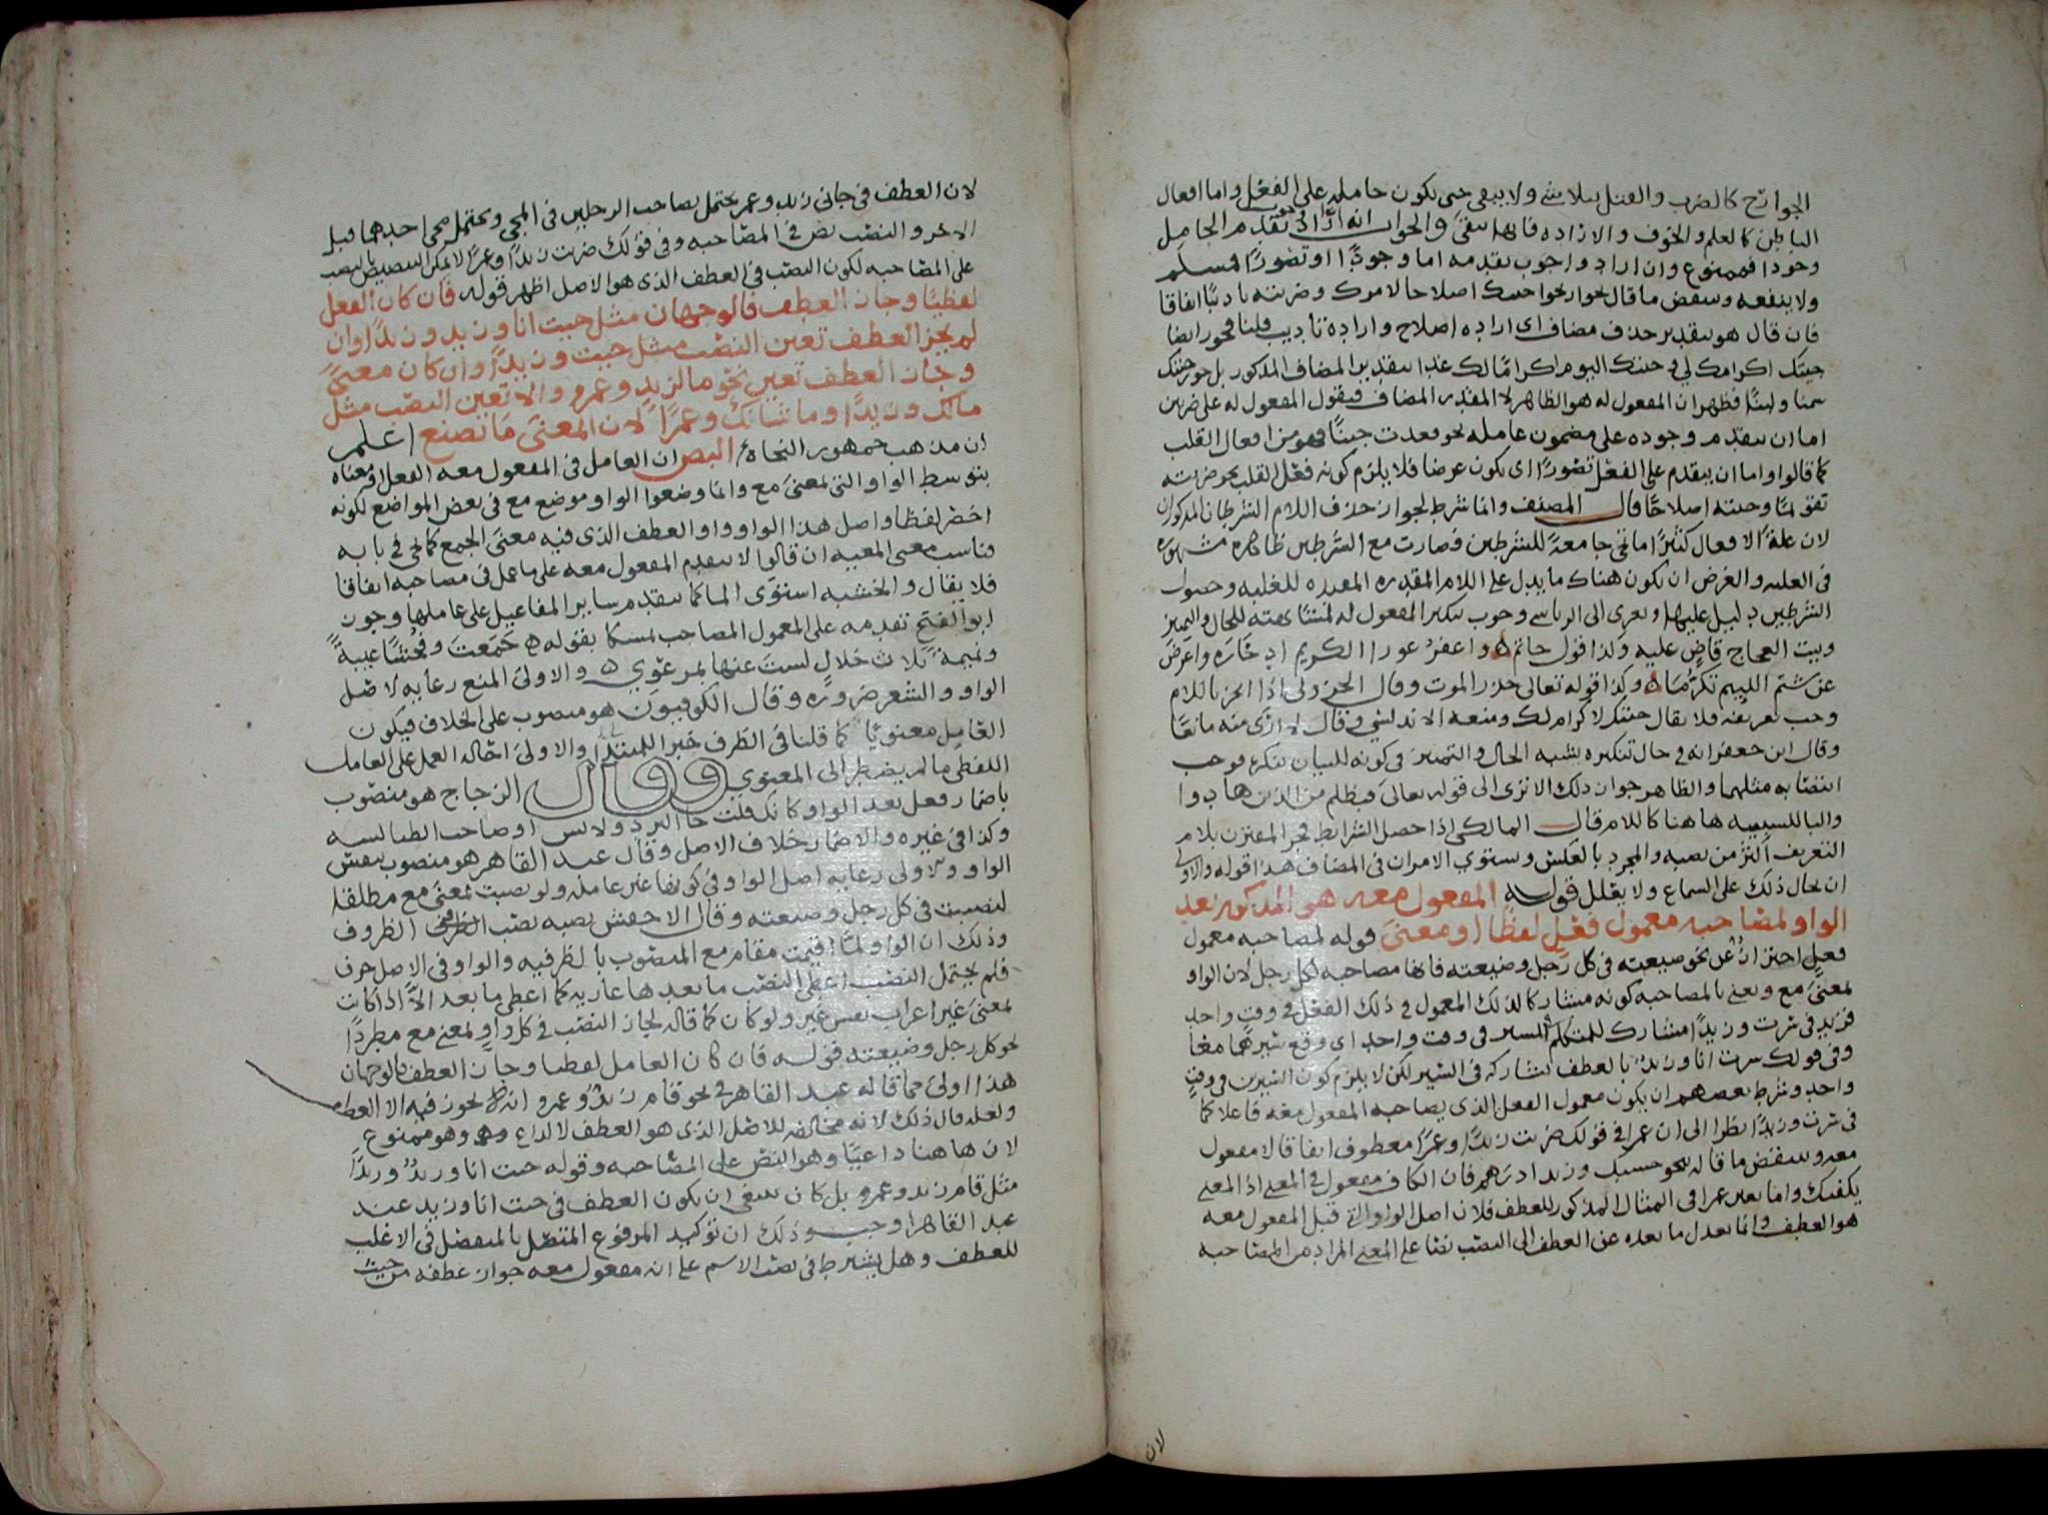 الجوارح كالضرب والقتل يتلاشى ولا يبقى حتى يكون حاملا على الفعل واما افعال
الباطن كالعلم والخوف والارادة فانها تبقى والجواب انه ان اراد تقدم الحامل
وجودا فممنوع وان اراد وجوب تقدمه اما وجودًا او تصورًا فمسلم
ولا ينفعه وينتقض ما قال بجواز نحو جئتك اصلاحا لامرك وضربته تاديبًا اتفاقا
فان قال هو بتقدير حذف مضاف اى ارادة اصلاح وارادة تاديب قلنا فجوز ايضا
جئتك اكرامك لى وجئتك اليوم اكرامًا لك غدا بتقدير المضاف المذكور بل جوز جئتك
سمنا ولبنًا فظهر ان المفعول له هو الظاهر لا المقدر المضاف فيقول المفعول له على ضربين
اما ان يتقدم وجوده على مضمون عامله نحو قعدت جبنًا فهو من افعال القلب
كما قالوا واما ان يتقدم على الفعل تصورًا اى يكون غرضا فلا يلزم كونه فعل القلب نحو ضربته
تقويمًا وجئته اصلاحًا قال المصنف وانما شرط لجواز حذف اللام الشرطان المذكوران
لان علة الافعال كثيرًا ما تجئ جامعة للشرطين فصارت مع الشرطين ظاهرة مشهورة
فى العلية والغرض ان يكون هناك ما يدل على اللام المقدرة المفيدة للعلية وحصول
الشرطين دليل عليها ويعزى الى الرياشى وجوب تنكير المفعول له لمشابهته للحال والتمييز
وبيت العجاج قاضٍ عليه وكذا قول حاتم ه واغفر عوراء الكريم ادخاره واعرض
عن شتم اللئيم تكرمًا ه وكذا قوله تعالى حذر الموت وقال الجزولى اذا انجر باللام
وجب تعريفه فلا يقال جئتك لاكرام لك ومنعه الاندلسى وقال لا ارى منه مانعًا
وقال ابن جعفر انه فى حال تنكيره يشبه الحال والتمييز فى كونه للبيان بنكرة فوجب
انتصابه مثلهما والظاهر جواز ذلك الا ترى الى قوله تعالى فبظلم من الذين هادوا
والباء للسببية هاهنا كاللام قال المالكى اذا حصل الشرايط فجر المقترن بلام
التعريف اكثر من نصبه والمجرد بالعكس ويستوى الامران فى المضاف هذا قوله والاولى
ان يحال ذلك على السماع ولا يعلل قوله المفعول معه هو المذكور بعد
الواو لمصاحبه معمول فعل لفظًا او معنىً قوله لمصاحبه معمول
فعلٍ احترازٌ عن نحو ضيعته فى كل رجل وضيعته فانها مصاحبة لكل رجل لان الواو
بمعنى مع ونعنى بالمصاحبه كونه مشاركا لذلك المعمول فى ذلك الفعل فى وقت واحد
فزيد فى سرت وزيدًا مشارك للمتكلم فى السير فى وقت واحد اى وقع سيرهما معًا
وفى قولك سرت انا وزيدٌ بالعطف يشاركه فى السير لكن لا يلزم كون السيرين فى وقت
واحد وشرط بعضهم ان يكون معمول الفعل الذى يصاحبه المفعول معه فاعلا كما
فى سرت وزيدًا نظرا الى ان عمرا فى قولك ضربت زيدًا وعمرًا معطوف اتفاقا لا مفعول
معه وينتقض ما قاله بنحو حسبك وزيدا درهم فان الكاف مفعول فى المعنى اذ المعنى
يكفيك وانما تعين عمرا فى المثال المذكور للعطف فلان اصل الواو التى قبل المفعول معه
هو العطف وانما يعدل ما بعده عن العطف الى النصب نصا على المعنى المراد من المصاحبة
لان
لان العطف فى جاءنى زيد وعمرو يحتمل تصاحب الرجلين فى المجئ ويحتمل مجئ احدهما قبل
الاخر والنصب نص فى المصاحبه وفى قولك ضربت زيدًا وعمرًا لا يمكن التنصيص بالنصب
على المصاحبه لكون النصب فى العطف الذى هو الاصل اظهر قوله فان كان الفعل
لفظيًا وجاز العطف فالوجهان مثل جيت انا وزيد وزيدًا وان
لم يجز العطف تعين النصب مثل جيت وزيدًا وان كان معنىً
وجاز العطف تعين نحو ما لزيدٍ وعمرو والا تعين النصب مثل
مالك وزيدًا وما شانك وعمرًا لان المعنى ما تصنع اعلم
ان مذهب جمهور النحاة البصر ان العامل فى المفعول معه الفعل او معناه
بتوسط الواو التى بمعنى مع وانما وضعوا الواو موضع مع فى بعض المواضع لكونه
اخصر لفظا واصل هذا الواو واو العطف الذى فيه معنى الجمع كما يجئ فى بابه
فناسب معنى المعية ان قالوا لا يتقدم المفعول معه على ما عمل فى مصاحبه اتفاقا
فلا يقال والخشبه استوى الماء كما يتقدم ساير المفاعيل على عاملها وجوز
ابو الفتح تقدمه على المعمول المصاحب تمسكا بقوله ه جمعت وفحشًا غيبةً
ونميمةً ثلاث خلال لست عنها بمرعوى ه والاولى المنع رعاية لاصل
الواو والشعر ضرورة وقال الكوفيون هو منصوب على الخلاف فيكون
العامل معنويًا كما قلنا فى الظرف خبر المبتدا والاولى احالة العمل على العامل
اللفظى ما لم يضطر الى المعنوى وقال الزجاج هو منصوب
باضمار فعل بعد الواو كانك قلت جاء البرد ولابس او صاحب الطيالسه
وكذا فى غيره والاضمار خلاف الاصل وقال عبد القاهر هو منصوب بنفس
الواو والاولى رعاية اصل الواو فى كونها غير عاملة ولو نصبت بمعنى مع مطلقا
لنصبت فى كل رجل وضيعته وقال الاخفش نصبه نصب الظروف
وذلك ان الواو لما اقيمت مقام مع المنصوب بالظرفيه والواو فى الاصل حرف
فلم يحتمل النصب اعطى النصب ما بعدها عارية كما اعطى ما بعد الا اذا كانت
بمعنى غير اعراب نفس غير ولو كان كما قال لجاز النصب فى كل واو بمعنى مع مطردًا
نحو كل رجل وضيعته قوله فان كان العامل لفظيا وجاز العطف فالوجهان
هذا اولى مما قاله عبد القاهر فى نحو قام زيدٌ وعمرو انه لا يجوز فيه الا العطف
ولعله قال ذلك لانه مخالفة للاصل الذى هو العطف لا لداع وهو ممنوع
لان هاهنا داعيًا وهو النص على المصاحبه وقوله جيت انا وزيدٌ وزيدًا
مثل قام زيد وعمرو بل كان ينبغى ان يكون العطف فى جيت انا وزيد عند
عبد القاهر اوجب وذلك ان توكيد المرفوع المتصل بالمنفصل فى الاغلب
للعطف وهل يشترط فى نصب الاسم على انه مفعول معه جواز عطفه من حيث